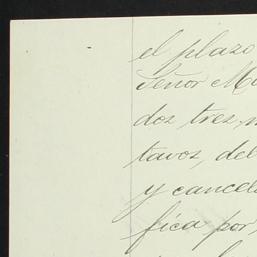 el plazo
Señor M
dos tres, m
tavos, del
y cancel
fica por,